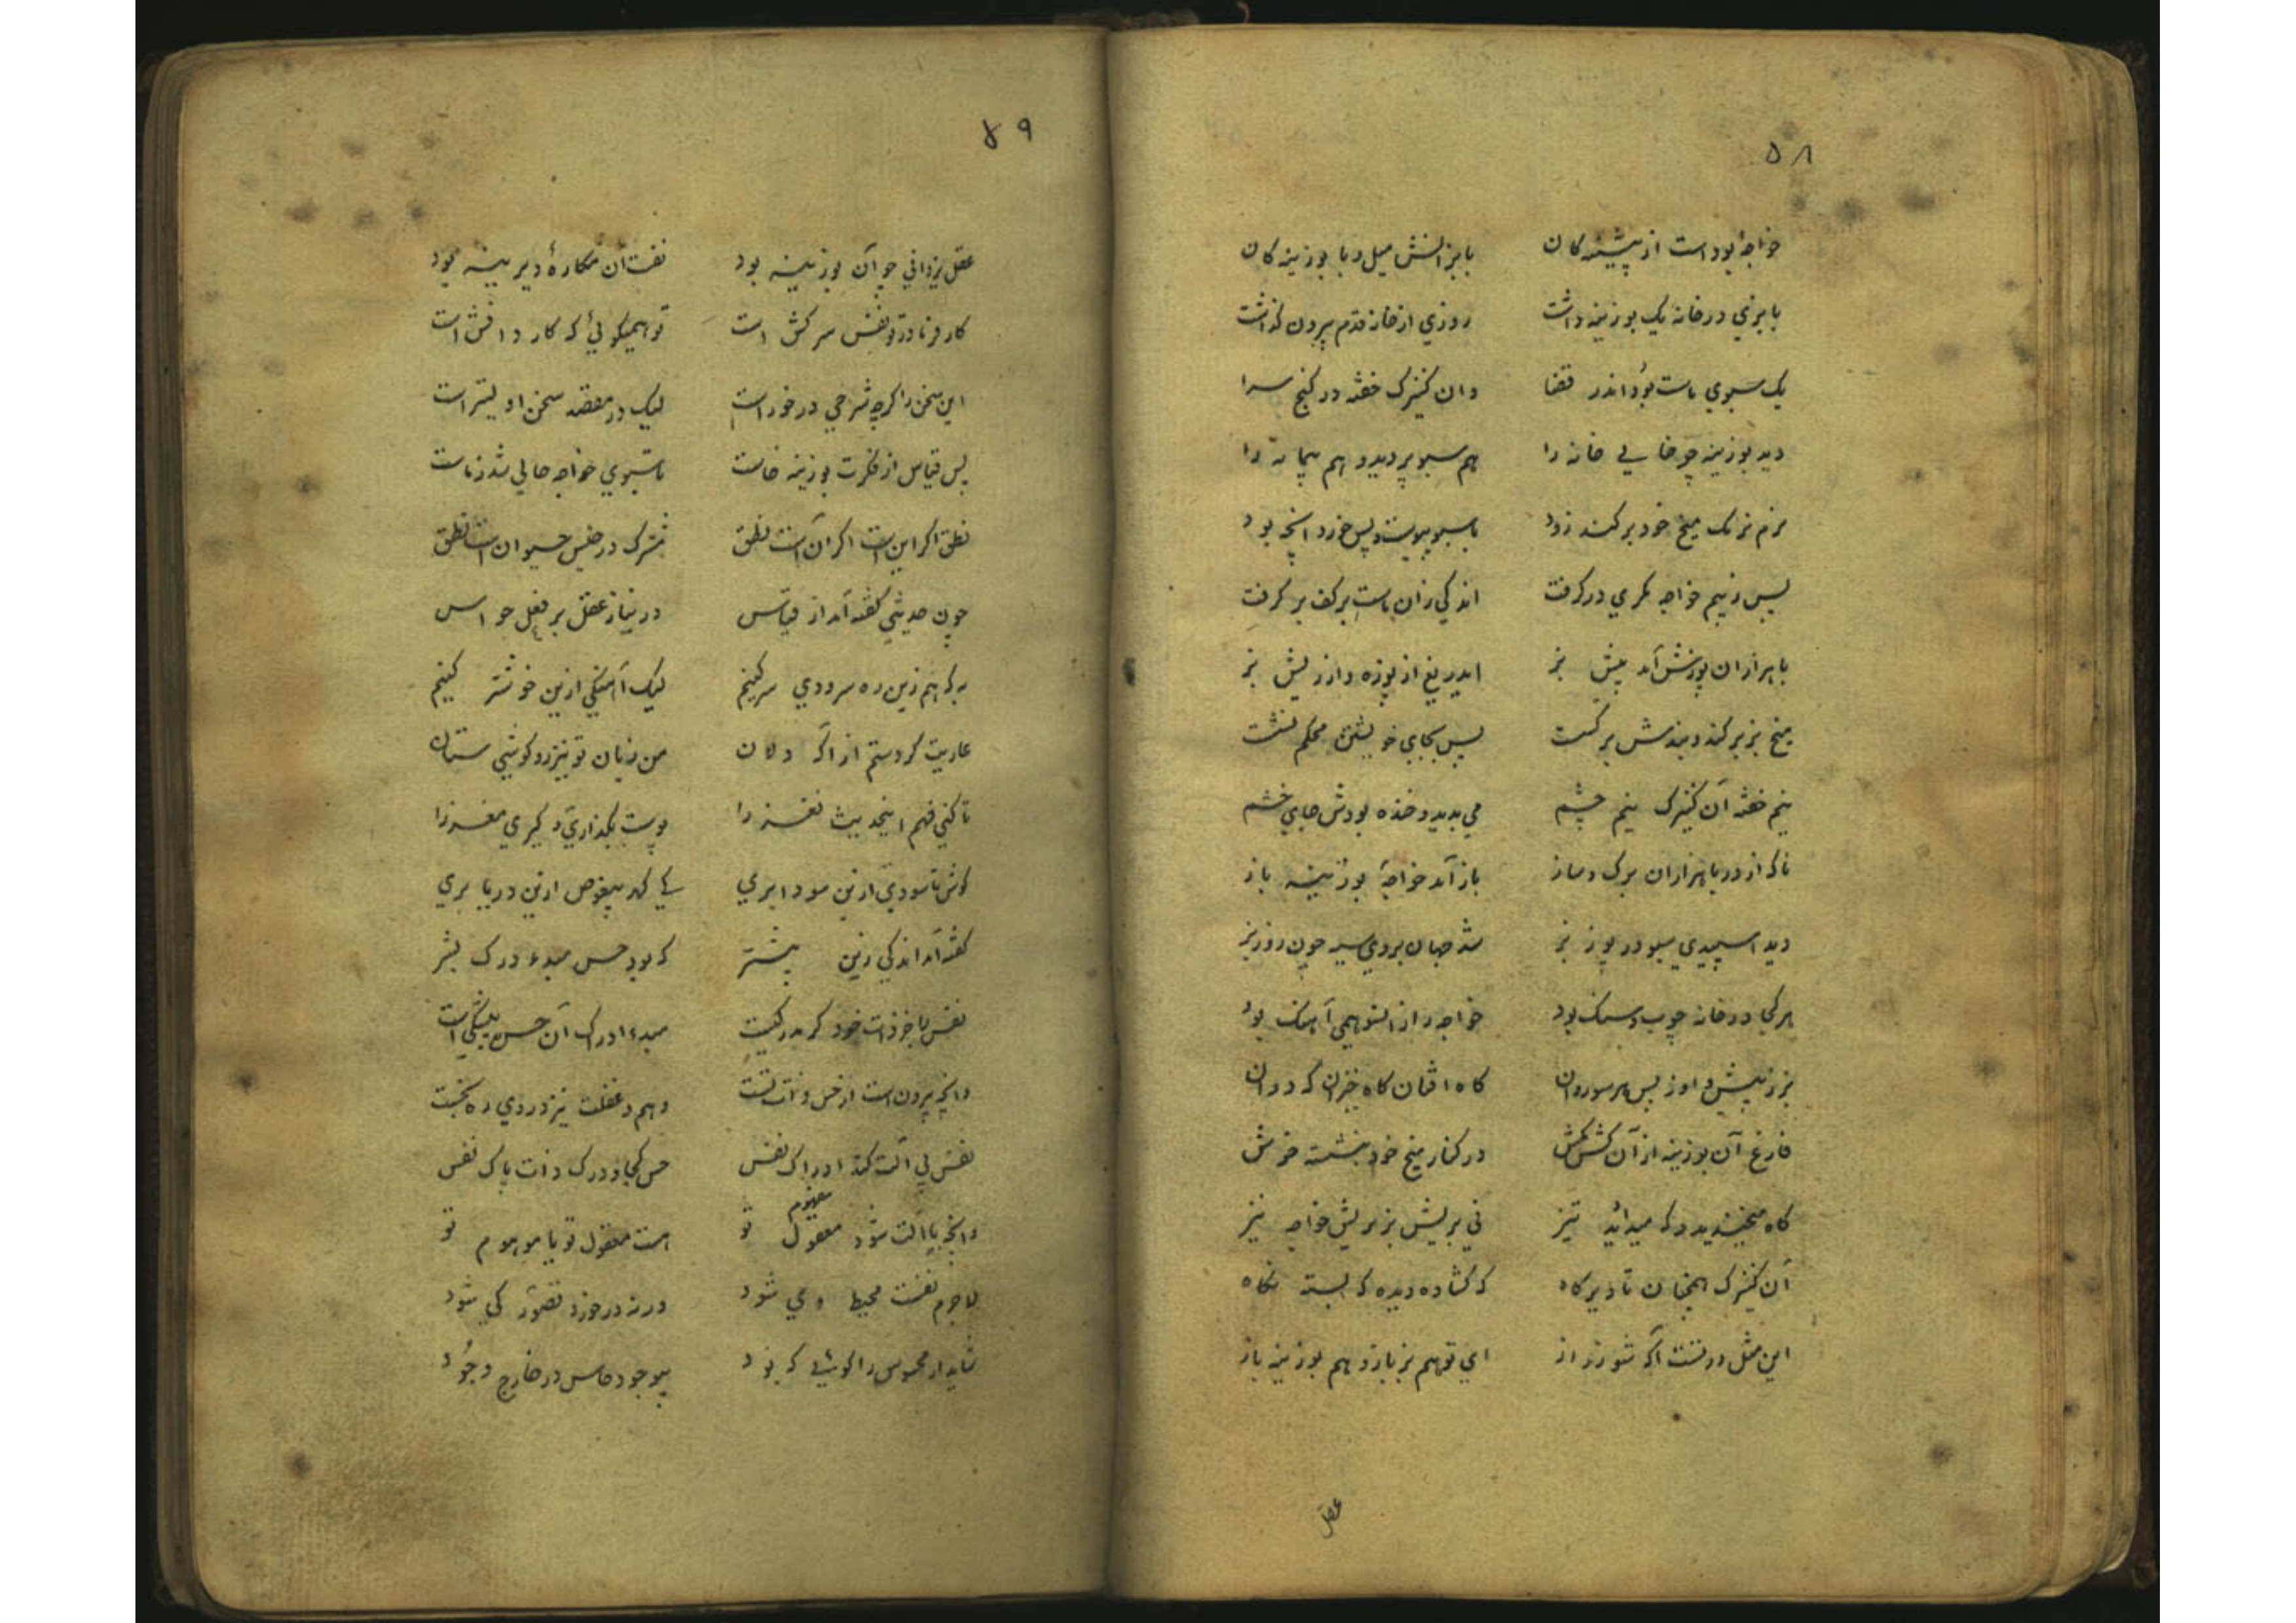 ۵۸
خواجهٔ بود است از پیشینه کان بابز انسش میل و با بوزینه کان
با بزی در خانه یک بوزینه داشت روزی از خانه قدم بیرون گذاشت
یک سبوی ماست بود اندر قضا وان کنیزک خفته در کنج سرا
دید بوزینه چو خالی خانه را هم سبو پر دید و هم پیمانه را
نرم نرمک میخ خود بر کند زود با سبو پیوست و پس خورد آنچه بود
پس ز بیم خواجه مکری در گرفت اندکی زان ماست بر کف بر گرفت
با هزاران پوزش آمد پیش بز بیدریغ از پوزه و از ریش بز
میخ بز بر کند و بندش بر گسست پس بجای خویشتن محکم نشست
نیم خفته آن کنیزک نیم چشم می بدید و خنده بودش جای خشم
ناگه از در با هزاران برک و ساز باز آمد خواجهٔ بوزینه باز
دید اسپیدی سبو در پوز بز شد جهان بروی سیه چون روز بز
هر کجا در خانه چوب و سنک بود خواجه را زانسو همی آهنک بود
بز ز پیش و او ز پس هر سو روان کاه افتان کاه خیزان که دوان
فارغ آن بوزینه از آن کش مکش در کنار میخ خود بنشسته خوش
کاه میخندید و که میدید تیز نی بریش بز بریش خواجه نیز
آن کنیزک همچنان تا دیرگاه که گشاده دیده که بسته نگاه
این مثل در تست اگر شورزد از ای تو هم بز باز و هم بوزینه باز
عقل
۵۹
عقل یزدانی چو آن بوزینه بود نفست آن مکارهٔ دیرینه بود
کار فرما در تو نفس سرکش است تو همیگوئی که کار دانش است
این سخن را گرچه شرحی درخور است لیک در مقصد سخن اولیتر است
پس قیاس از فکرت بوزینه خاست ماست سبوی خواجه خالی شد ز ماست
نطق اگر این است اگر آن است نطق مشترک در جنس حیوان است نطق
چون حدیثی گفته آمد از قیاس در نیاز عقل بر فعل حواس
به که هم زین ره سرودی سر کنیم لیک آهنگی ازین خوشتر کنیم
عاریت کردستم از اگه دلان من زبان تو نیز رو گوشی ستان
تا کنی فهم اینحدیث نغز را پوست بگذاری و گیری مغز را
گوش تا سودی ازین سودا بری کی گهر بیغوص ازین دریا بری
گفته آمد اندکی زین پیشتر که بود حس مبدء درک بشر
نفس با جز ذات خود گر مدرکیست مبدء ادراک آن حس بیشکی است
وانچه بیرون است از حس و ذات تست وهم و غفلت نیز در وی ره نجست
نفس بی آلت کند ادراک نفس حس کجا و درک ذات پاک نفس
وانچه با آلت شود مفهوم معقول تو هست معقول تو یا موهوم تو
لاجرم نفست محیط وی شود ورنه در خورد تصور کی شود
شاید ار محسوس را گوئی که بود بیوجود حاس در خارج وجود